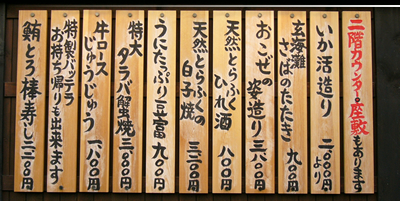 二階カウンター・座敷もあります
いか活造り 二、〇〇〇円より
玄海灘
さばのたたき 九〇〇円
おこぜの姿造り 三、八〇〇円
天然とらふく
ひれ酒 八〇〇円
天然とらふくの
白子焼 三、二〇〇円
うにたっぷり豆富 九〇〇円
特大
タラバ蟹焼 三、〇〇〇円
牛ロース
じゅうじゅう 一、八〇〇円
特製バッテラ
お持ち帰りも出来ます
鯖とろ棒寿し 二、二〇〇円